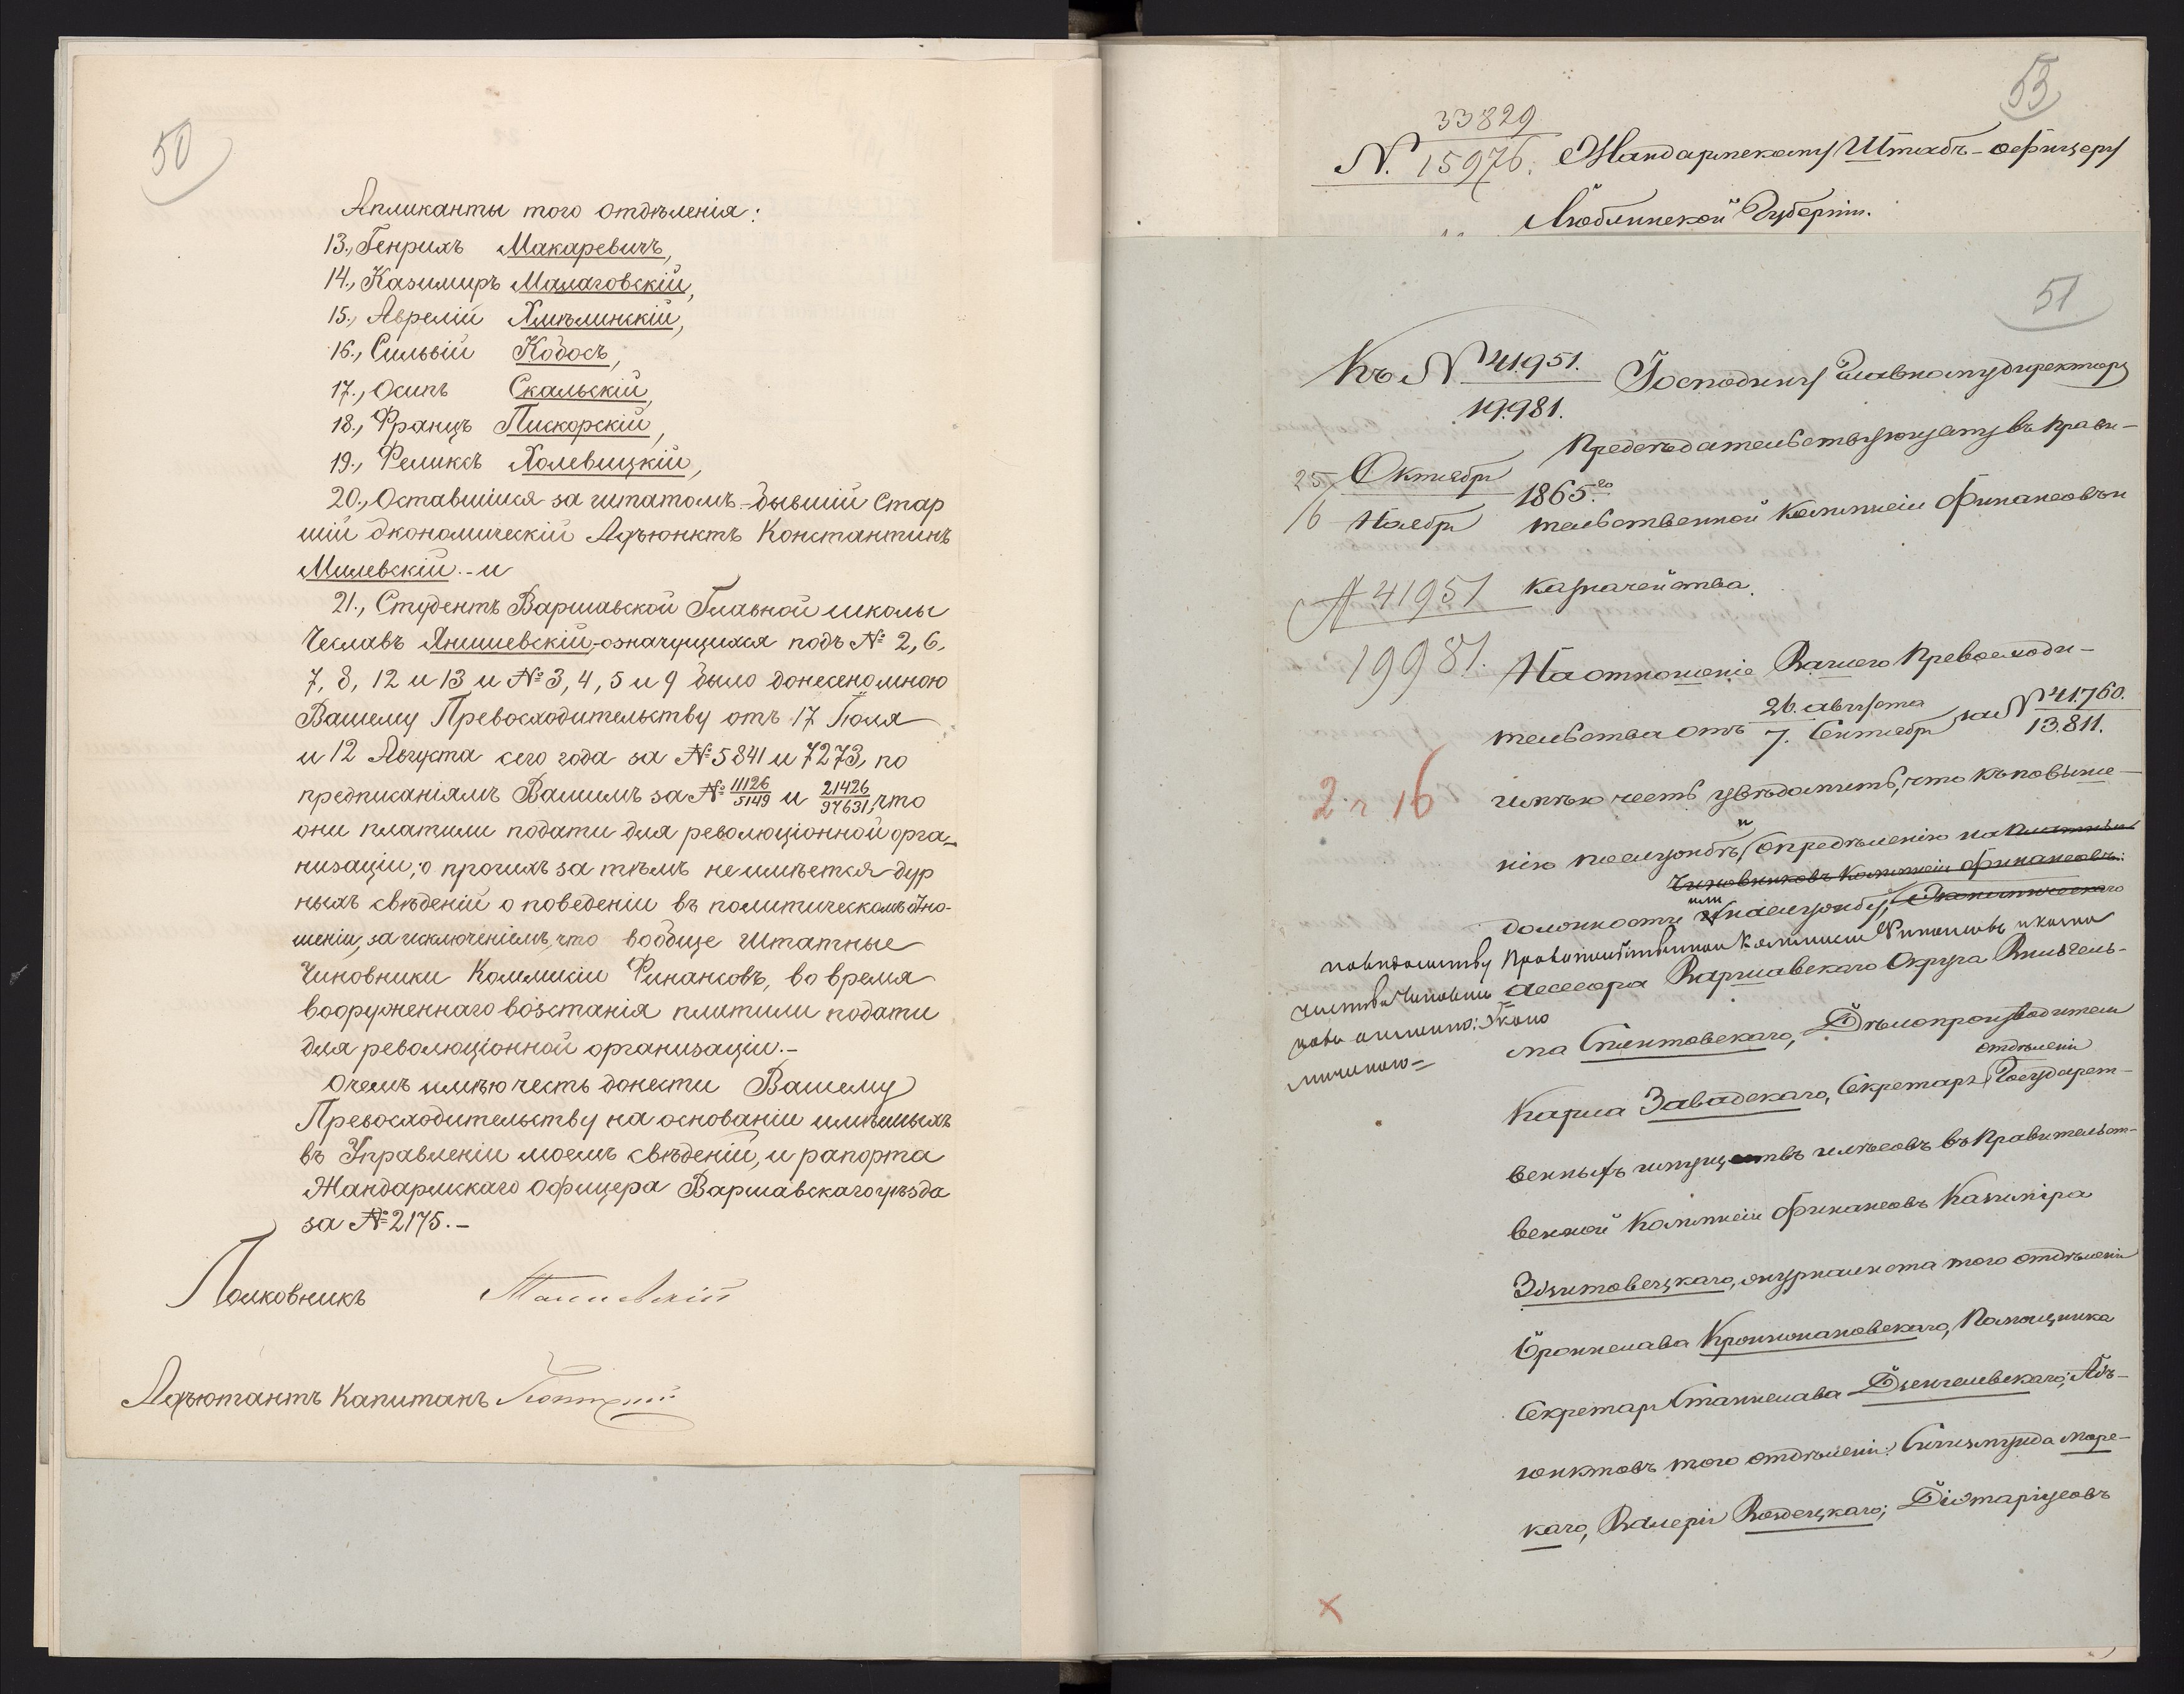 50
Апликанты того отдѣленія:
13., Генрихъ Макаревичъ,
14., Казимиръ Малаговскій,
15., Аврелій Хмѣлинскій,
16., Сильвій Кобосъ,
17., Осипъ Скальскій,
18., Францъ Пискорскій,
19., Феликсъ Холевицкій,
20., Оставшійся за штатомъ-бывшій Стар
шій Экономическій Адъюнктъ Константинъ
Милевскій.-и
21., Студентъ Варшавской Главной школы
Чеславъ Янишевскій,-означущихся подъ № 2, 6,
7, 8, 12 и 13 и № 3, 4, 5 и 9 было донесено мною
Вашему Превосходительству отъ 17 Іюля
и 12 Августа сего года за № 5841 и 7273, по
предписаніямъ Вашимъ за № 11126/5149 и 21426/97631, что
они платили подати для революціонной орга-
низаціи; о прочихъ за тѣмъ не имѣется дур
ныхъ свѣденій о поведеніи въ политическомъ отно-
шеніи, за исключеніемъ, что вообще Штатные
Чиновники Коммисіи Финансовъ, во время
вооруженнаго возстанія платили подати
для революціонной организаціи.-
О чемъ имѣю честь донести Вашему
Превосходительству на основаніи имѣемыхъ
въ Управленіи моемъ свѣденій, и рапорта
Жандармскаго Офицера Варшавскаго уѣзда
за № 2175.-
Полковникъ
Адъютантъ Капитанъ
53
33829
N. 15976. Жандармскому Штабъ-офицеру
Люблинской Губерніи.
51
Къ N 41951. Господину Главному директору
19981.
Предсѣдательствующему въ Прави-
25 Октября
1865.го
/6 Ноября тельственной Коммисіи Финансовъ и
N 41951 Казначейства.
19981. На отношеніе Вашего Превосходи-
тельства отъ 26. августа / 7. Сентября за N 41760. / 13.811.
2. г. 16 имѣю честь увѣдомить, что къ повыше-
нію пособій, и опредѣленію на платныя
Чиновниковъ Коммисіи Финансовъ:
должности или Экономическаго
по вѣдомству Правительственной Коммисіи Финансовъ и Казна
чейства Чиновни Асессора Варшавскаго Округа Вильгель-
ковъ а именно: Эконо
мическаго= ма Свентовскаго, Дѣлопроизводителя
отдѣленія
Карла Завадскаго, Секретаря Государст-
венныхъ имуществъ и лѣсовъ въ Правительст-
венной Коммисіи Финансовъ Казиміра
Здзитовецкаго, журналиста того отдѣленія
Бронислава Кропивановскаго, Помощника
Секретаря Станислава Дзенгелевскаго; Адъ-
юнктовъ того отдѣленія: Сигизмунда Маре-
каго, Валерія Воздецкаго; Діэтаріусовъ
x